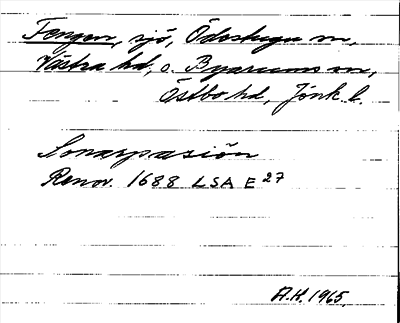 Fengen, sjö, Ödestugu sn,
Västra hd, o. Byarums sn,
Östbo hd, Jönk. l.
Sonarpasiön
Renov. 1688 LSA E 27
A.H. 1965.